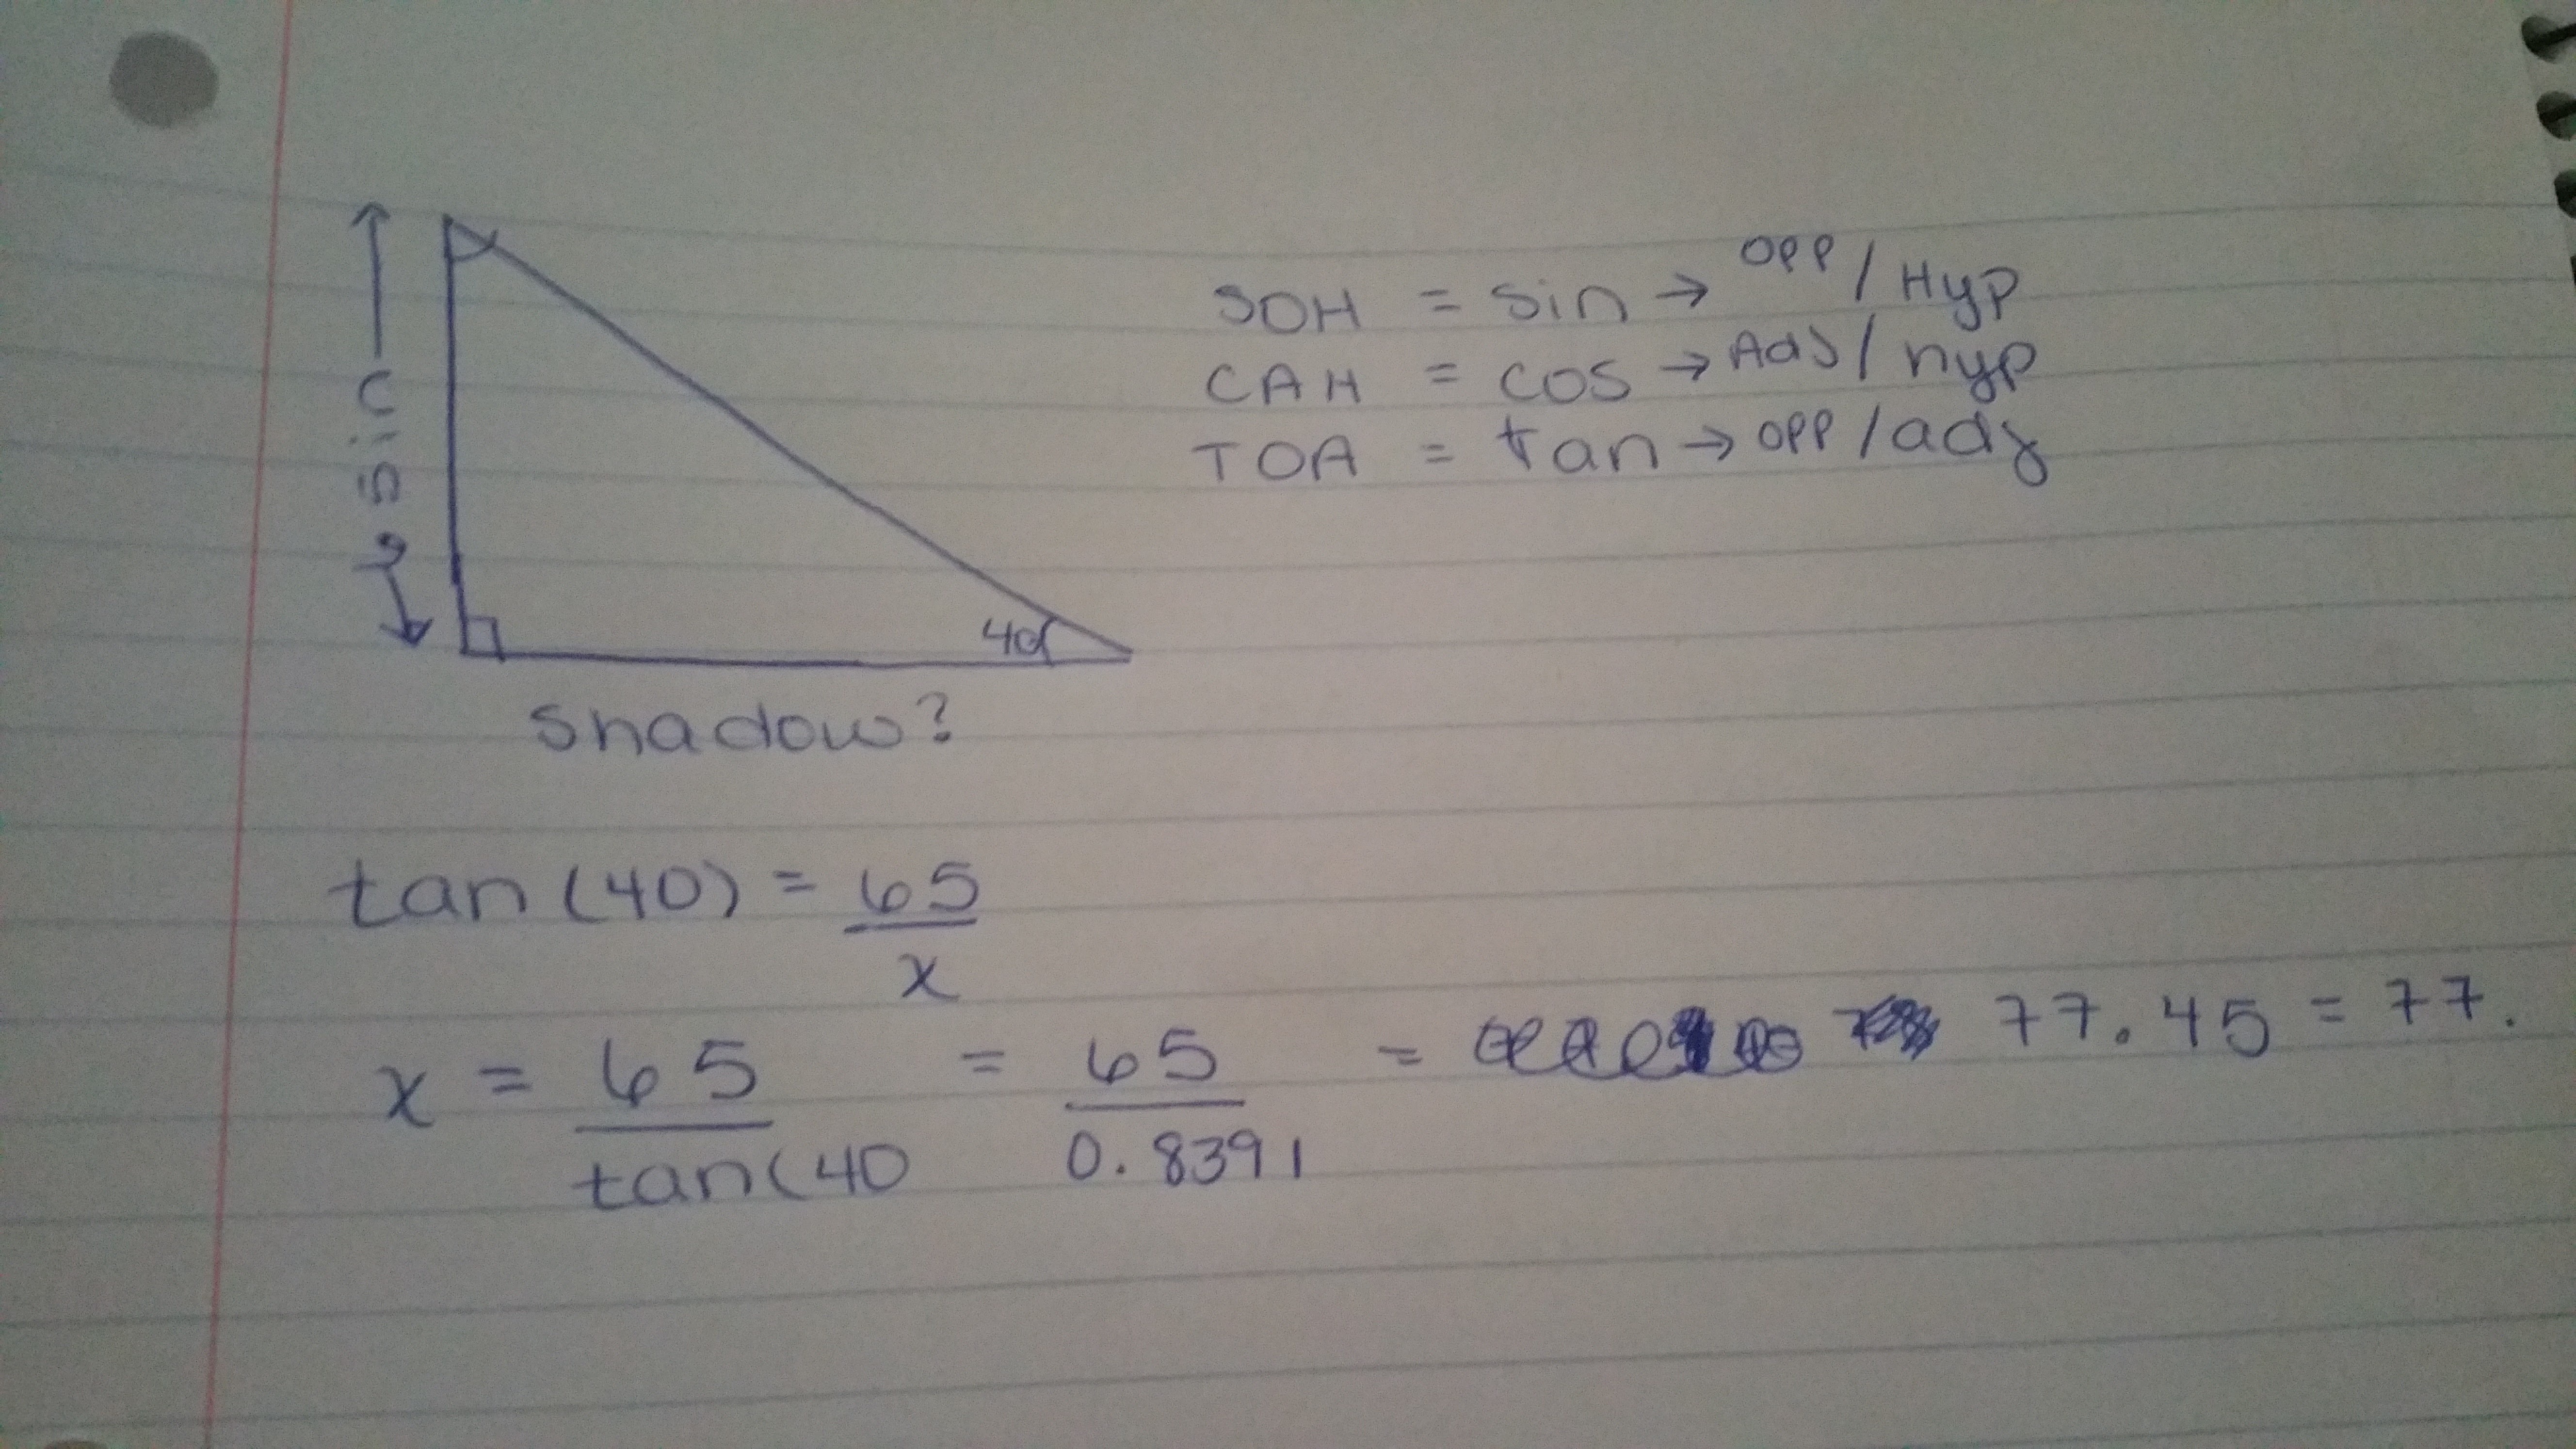 65in
40
shadow?
SOH = sin → OPP / Hyp
CAH = COS → Adj / hyp
TOA = tan → OPP / adj
tan (40) = 65
x
x = 65 = 65 = 77.45 = 77.
tan(40 0.8391